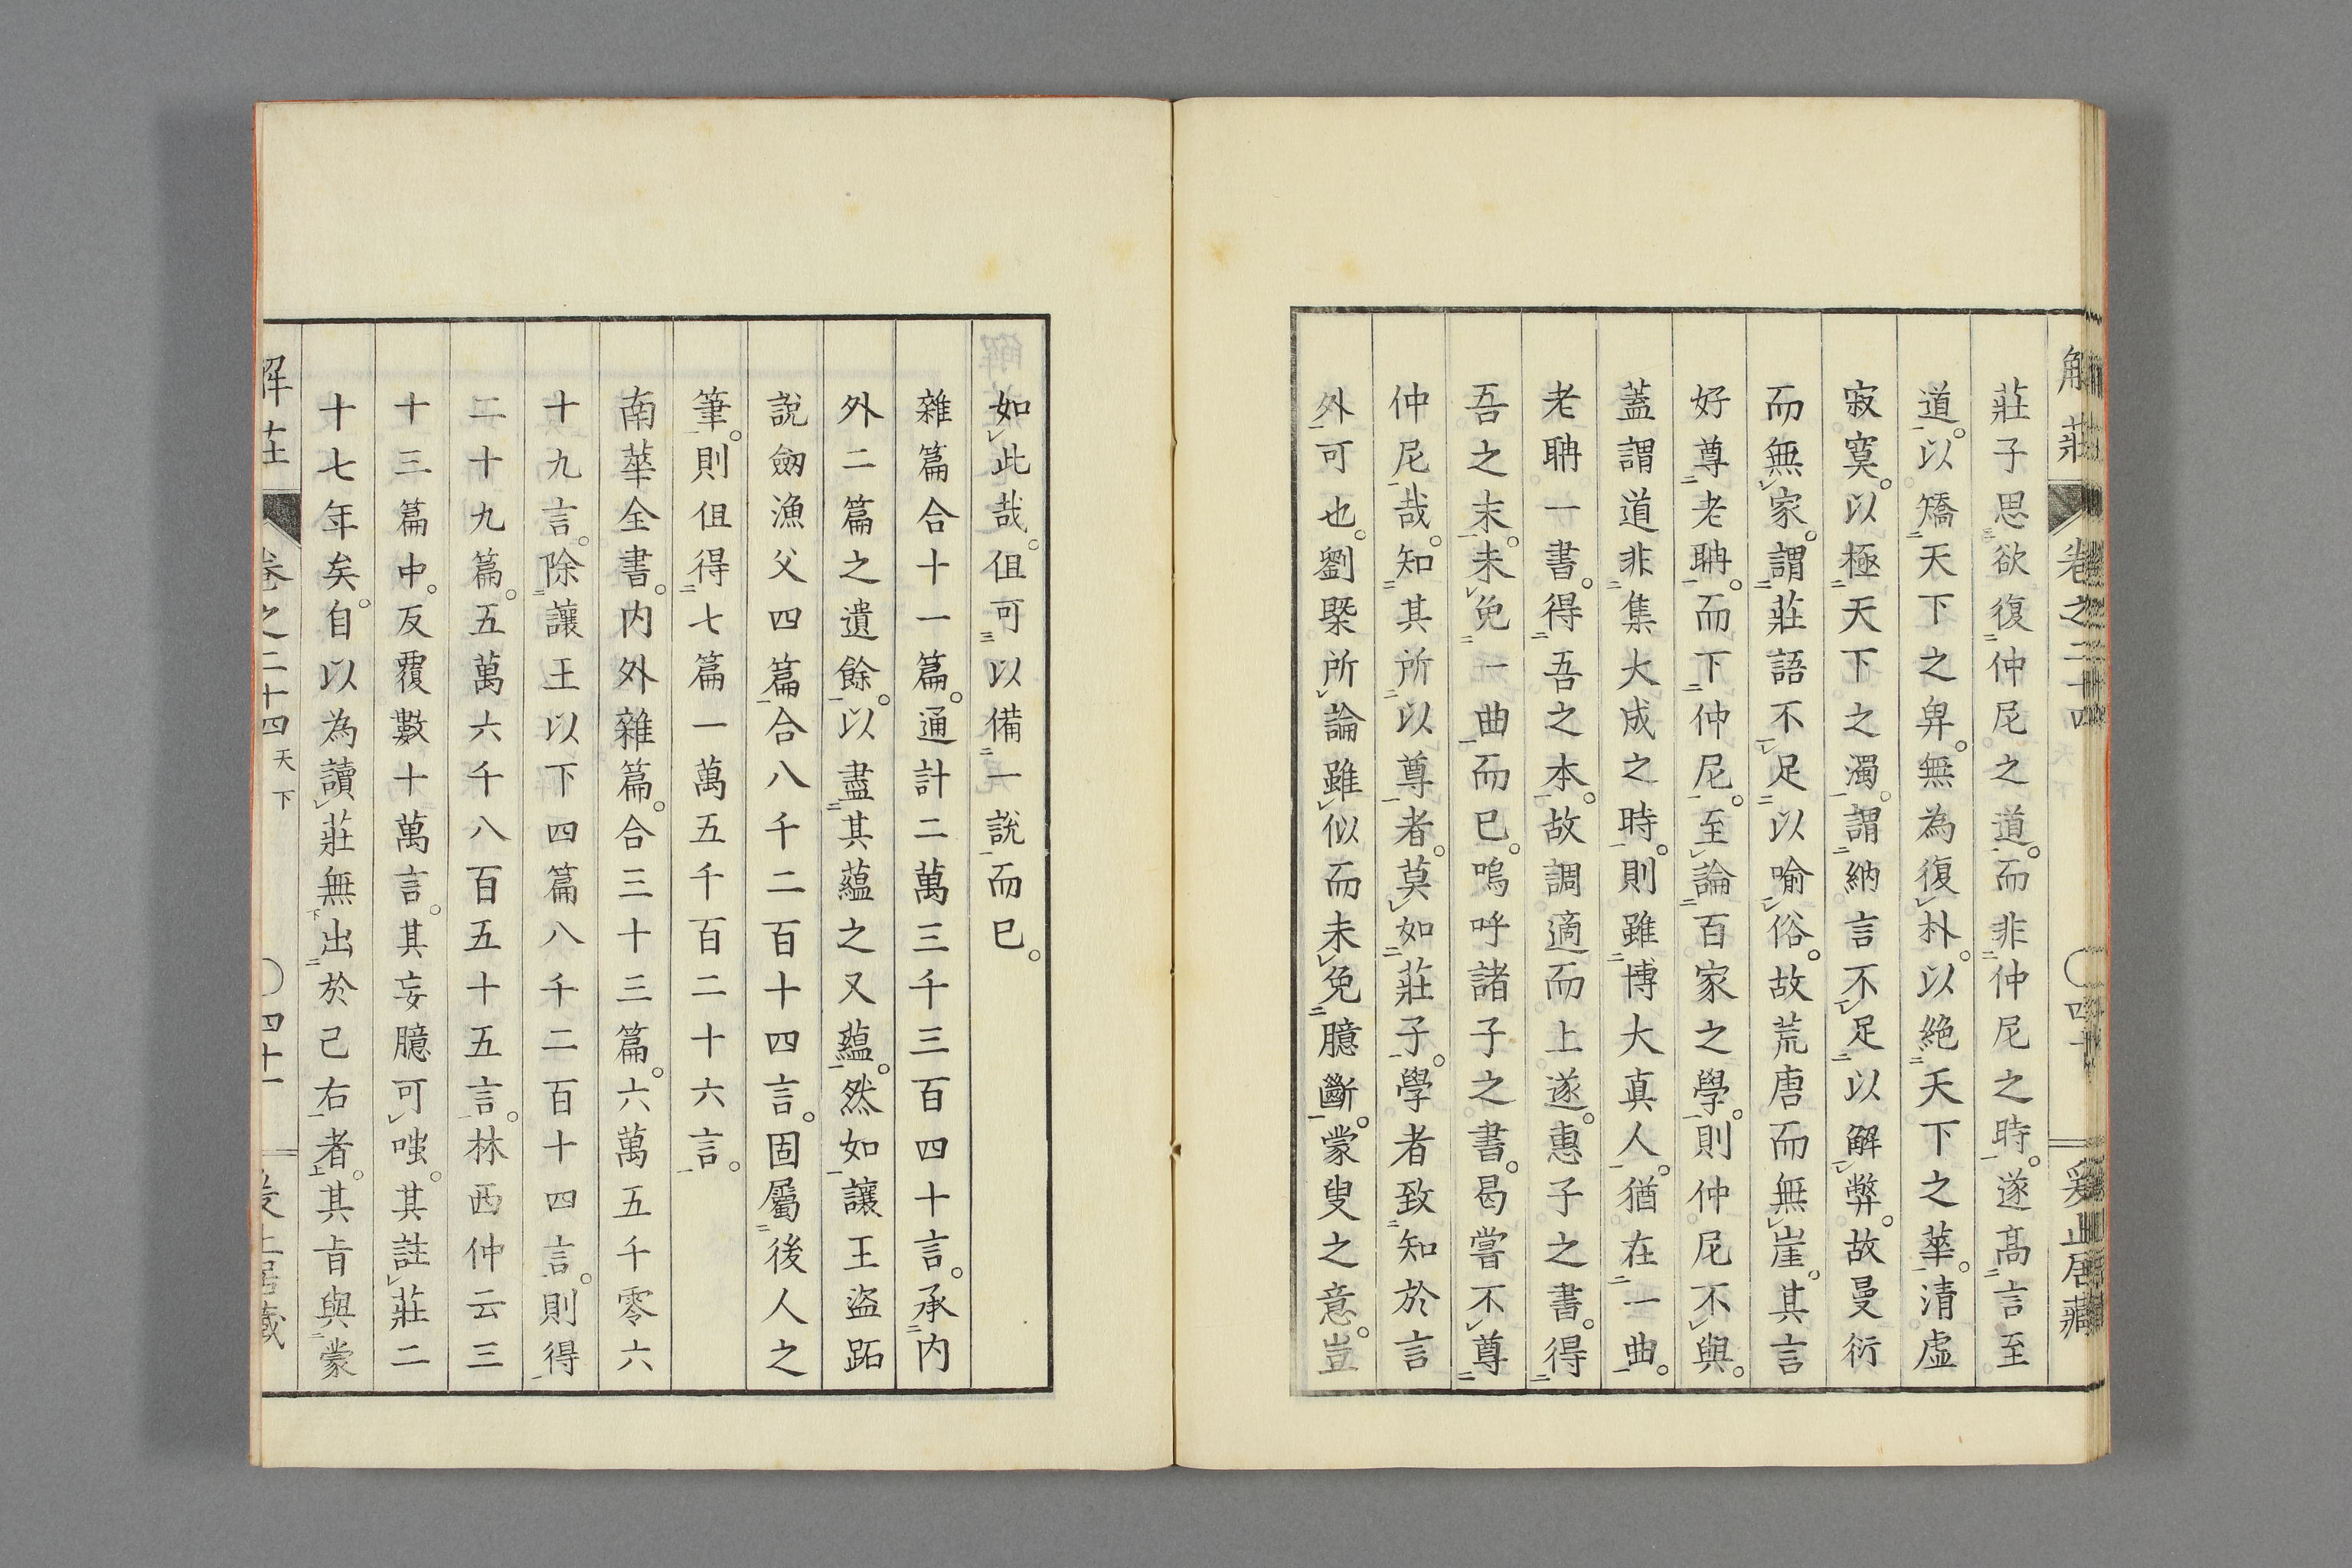 解莊 卷之二十四 四十 爰止居藏
莊子思欲復仲尼之道。而非仲尼之時。遂高言至
道。以矯天下之卑。無為復朴。以絕天下之華。清虛
寂寞。以極天下之濁。謂納言不足以解弊。故曼衍
而無家。謂莊語不足以喻俗。故荒唐而無崖。其言
好尊老聃。而下仲尼。至論百家之學。則仲尼不與。
蓋謂道非集大成之時。則雖博大真人。猶在一曲。
老聃一書。得吾之本。故調適而上遂。惠子之書。得
吾之末。未免一曲而已。嗚呼諸子之書。曷嘗不尊
仲尼哉。知其所以尊者。莫如莊子。學者致知於言
外可也。劉槩所論雖似而未免臆斷。蒙叟之意。豈
如此哉。但可以備一說而已。
雜篇合十一篇。通計二萬三千三百四十言。承内
外二篇之遺餘。以盡其蘊之又蘊。然如讓王盜跖
說劔漁父四篇合八千二百十四言。固屬後人之
筆。則但得七篇一萬五千百二十六言。
南華全書。内外雜篇。合三十三篇。六萬五千零六
十九言。除讓王以下四篇八千二百十四言。則得
二十九篇。五萬六千八百五十五言。林西仲云三
十三篇中。反覆數十萬言。其妄臆可嗤。其註莊二
十七年矣。自以為讀莊無出於己右者。其旨與蒙
解莊 卷之二十四 天下 四十一 爰止居藏